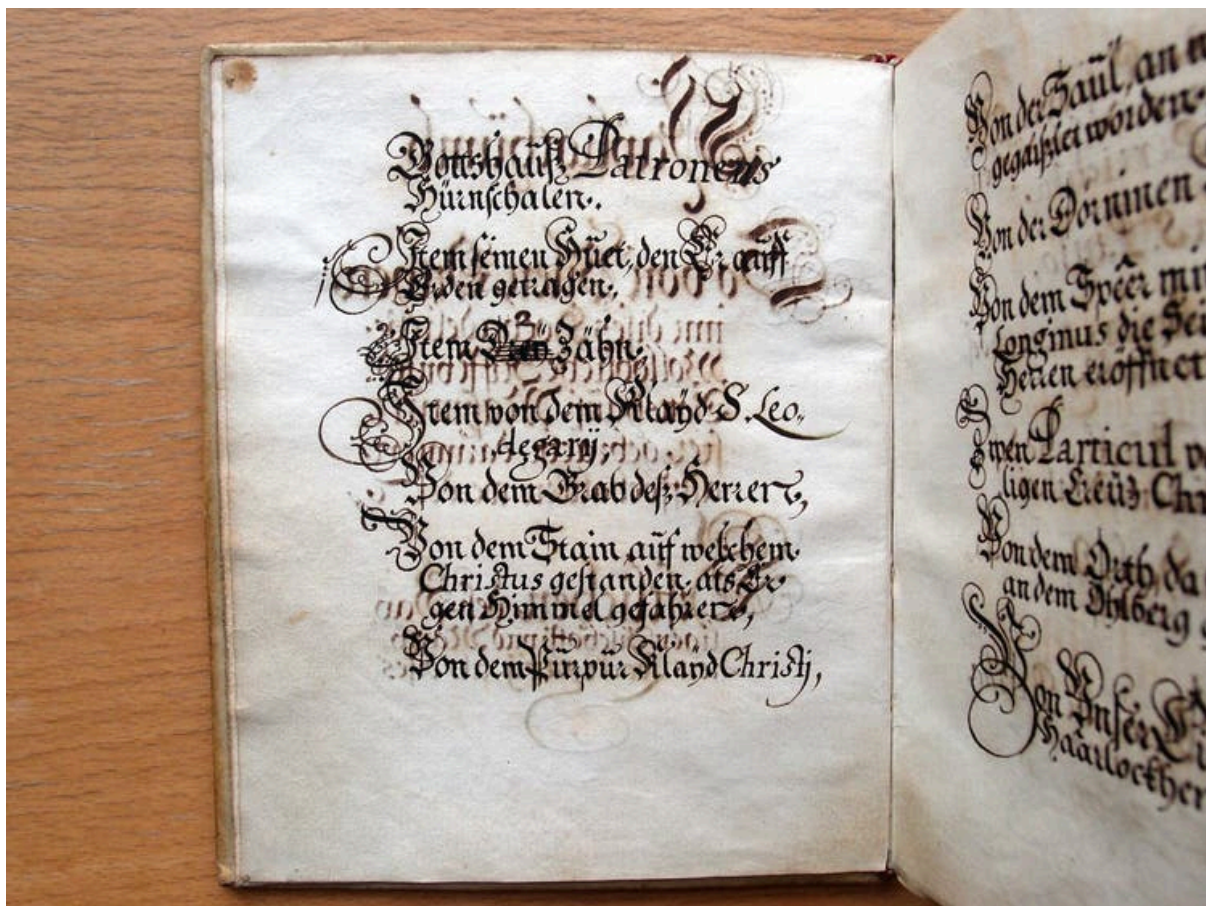 Gottshauß Patronens
Hürnschalen.
Item seinen Huet, den Er auff
Erden getragen.
Item 3 Zähn.
Item von dem Klayd S. Leo-
degarij,
Von dem Grab deß Herren,
Von dem Stain auf welchem
Christus gestanden, als Er
gen Himmel gefahren,
Von dem Purpur Klayd Christj,
Von der Saül, an
gegaißlet worden.
Von der Dörninen
Von dem Speêr mit
Longinus die Sei
Herren eröffnet
Zwen Particul
ligen Creütz Chri
Von dem Orth, da
an dem Öhlberg
Von Unser
Haarlockhen